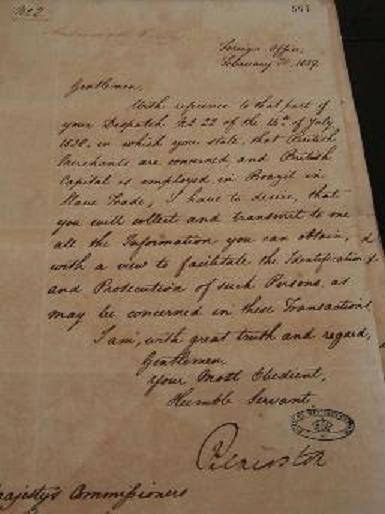 No 2.
Foreign Office,
February 20, 1839.
Gentlemen,
With reference to that part of
your Despatch No 22 of the 14th of July
1838, in which you state, that British
Merchants are concerned and British
Capital is employed in Brazil in
Slave Trade, I have to desire, that
you will collect and transmit to me
all the Information you can obtain,
with a view to facilitate the Identification
and Prosecution of such Persons as
may be concerned in these Transactions
I am, with great truth and regard,
Gentlemen
Your Most Obedient,
Humble Servant,
Palmerston
Majesty's Commissioners